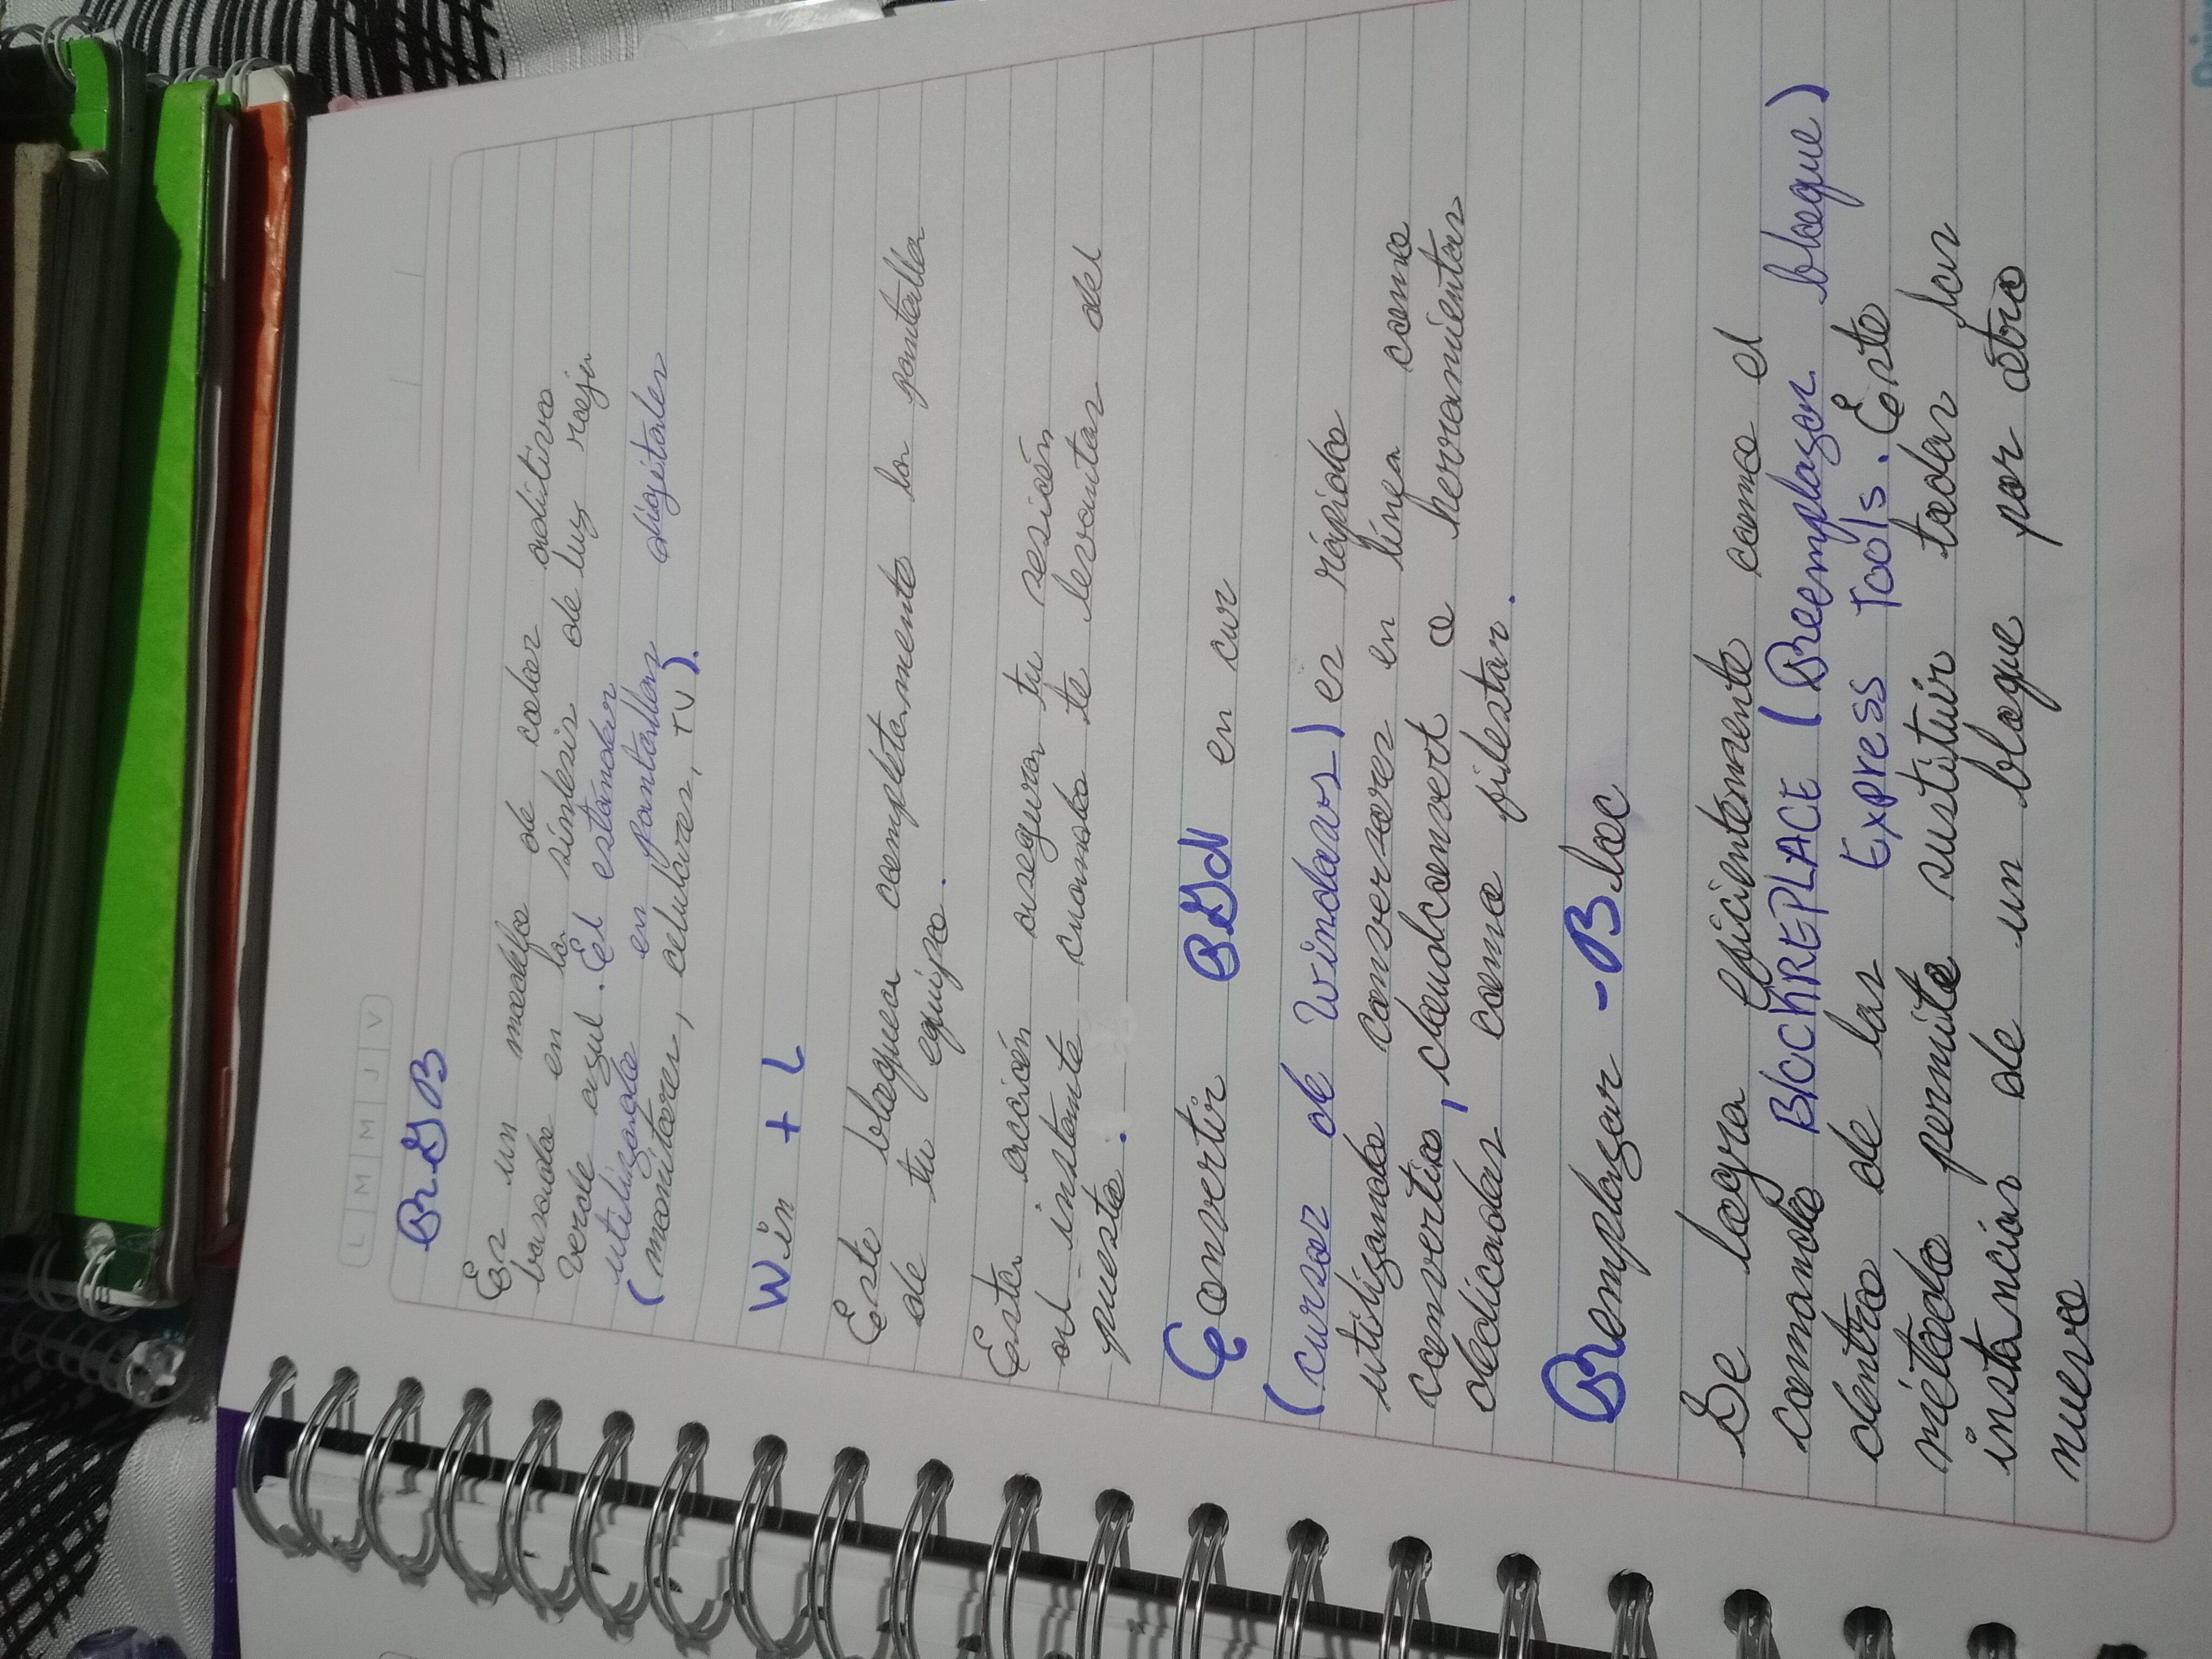 L M M J V
RGB
Es un modelo de color aditivo
basado en la síntesis de luz roja
verde azul. El estándar
utilizado en pantallas digitales
(monitores, celulares, TV).
Win + L
Este bloquea completamente la pantalla
de tu equipo.
Esta acción asegura tu sesión
al instante cuando te levantas del
puesto.
Convertir en cur
(cursor de Windows) es rápido
utilizando conversores en línea como
convertio, cloudconvert o herramientas
dedicadas como filestar.
Remplazar - Bloc
Se logra eficientemente como el
comando BlocchREPLACE (Reemplazar bloque)
dentro de las Express Tools. Este
método permite sustituir todas las
instancias de un bloque por otro
nuevo